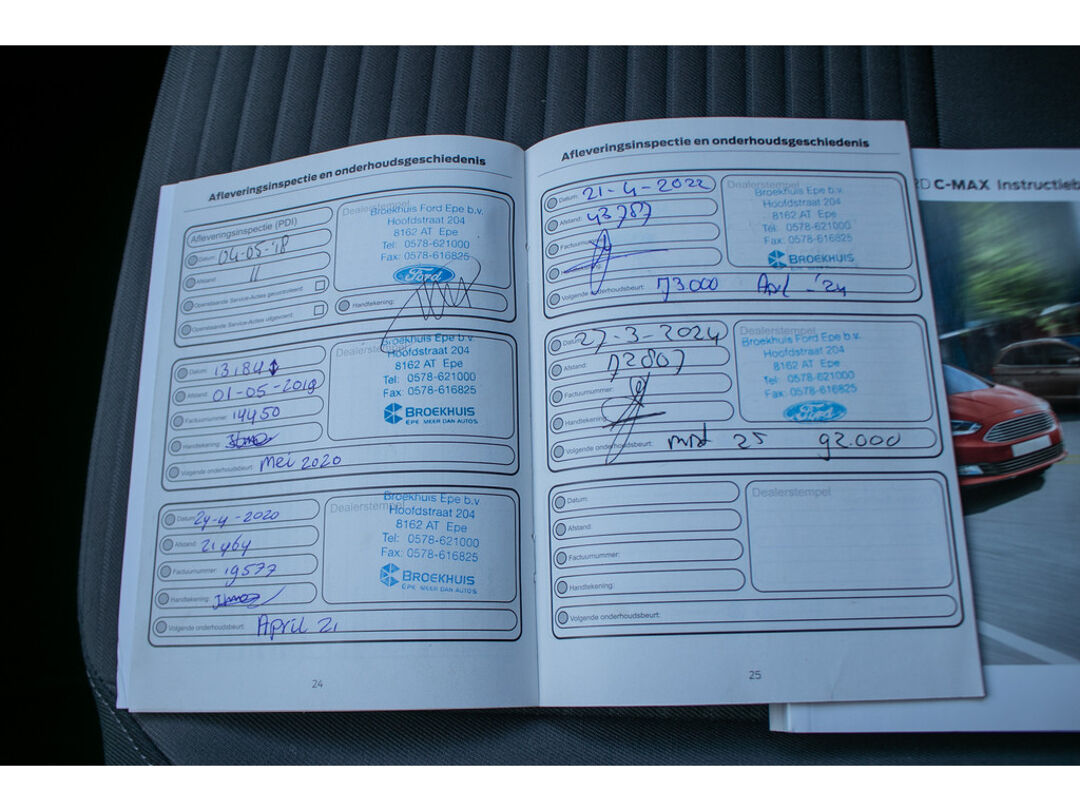 Afleveringsinspectie en onderhoudsgeschiedenis
Afleveringsinspectie (PDI)
Datum: 04-05-'18
Afstand: 11
Openstaande Service-Acties gecontroleerd:
Openstaande Service-Acties uitgevoerd:
Dealerstempel
Broekhuis Ford Epe b.v.
Hoofdstraat 204
8162 AT Epe
Tel: 0578-621000
Fax: 0578-616825
Ford
Handtekening:
Datum: 13.84
Afstand: 01-05-2019
Factuurnummer: 14450
Handtekening:
Volgende onderhoudsbeurt: Mei 2020
Dealerstempel
Broekhuis Ford Epe b.v.
Hoofdstraat 204
8162 AT Epe
Tel: 0578-621000
Fax: 0578-616825
BROEKHUIS
EPE MEER DAN AUTO'S
Datum: 24-4-2020
Afstand: 21464
Factuurnummer: 19577
Handtekening:
Volgende onderhoudsbeurt: April 21
Dealerstempel
Broekhuis Epe b.v.
Hoofdstraat 204
8162 AT Epe
Tel: 0578-621000
Fax: 0578-616825
BROEKHUIS
EPE MEER DAN AUTO'S
24
Afleveringsinspectie en onderhoudsgeschiedenis
Datum: 21-4-2022
Afstand: 43787
Factuurnummer:
Handtekening:
Volgende onderhoudsbeurt: 73.000 April -'24
Dealerstempel
Broekhuis Epe b.v.
Hoofdstraat 204
8162 AT Epe
Tel: 0578-621000
Fax: 0578-616825
BROEKHUIS
Datum: 27-3-2024
Afstand: 72807
Factuurnummer:
Handtekening:
Volgende onderhoudsbeurt: mrt 25 92.000
Dealerstempel
Broekhuis Ford Epe b.v.
Hoofdstraat 204
8162 AT Epe
Tel: 0578-621000
Fax: 0578-616825
Ford
Datum:
Afstand:
Factuurnummer:
Handtekening:
Volgende onderhoudsbeurt:
Dealerstempel
25
RD C-MAX Instructieb